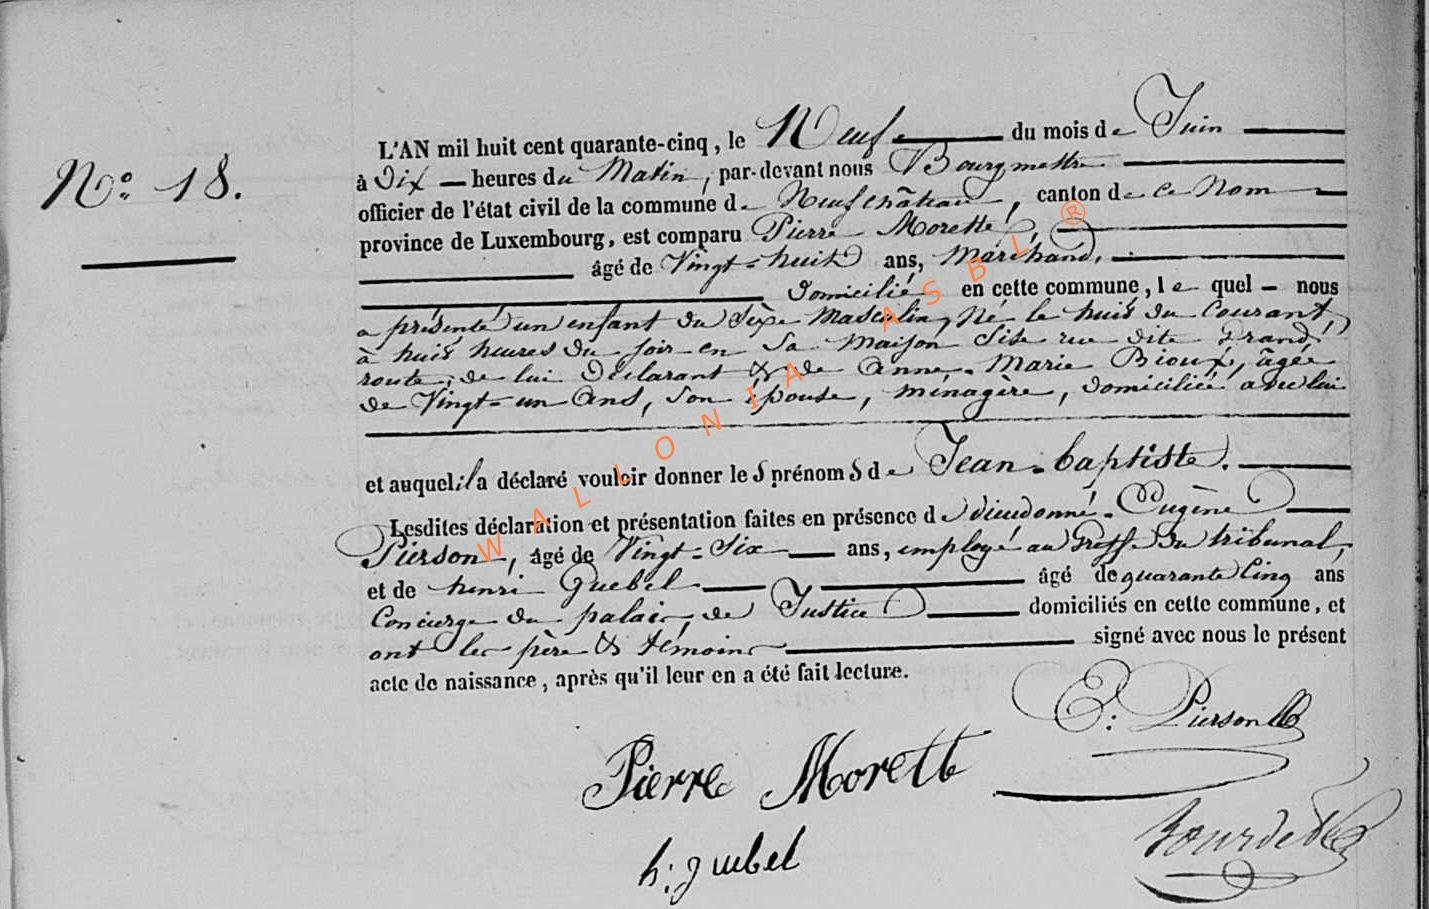 N.° 18.
L'AN mil huit cent quarante-cinq, le Neuf du mois de Juin
à Dix heures du Matin, par-devant nous Bourgmettre
officier de l'état civil de la commune de Neufchâteau, canton de ce Nom
province de Luxembourg, est comparu Pierre Morette,
âgé de Vingt-huit ans, Marchand,
Domicilié en cette commune, le quel nous
a présenté un enfant du Sèxe Masculin, Né le huit du Courant,
à huit heures du soir en sa Maison Sise rue dite Grand
route, de lui Déclarant & de Anne-Marie Bioux, âgée
de Vingt-un Ans, Son épouse, ménagère, domiciliée avec lui
et auquel il a déclaré vouloir donner le S prénom S de Jean-baptiste.
Lesdites déclaration et présentation faites en présence de dieudonné-Eugène
Pierson, âgé de Vingt-Six ans, employé au Greffe du tribunal,
et de henri Guebel âgé de quarante Cinq ans
Concierge du palais de Justice domiciliés en cette commune, et
ont les père & témoins signé avec nous le présent
acte de naissance, après qu'il leur en a été fait lecture.
E: Pierson
Pierre Morette
h: guebel
WALLONIA ASBL ®